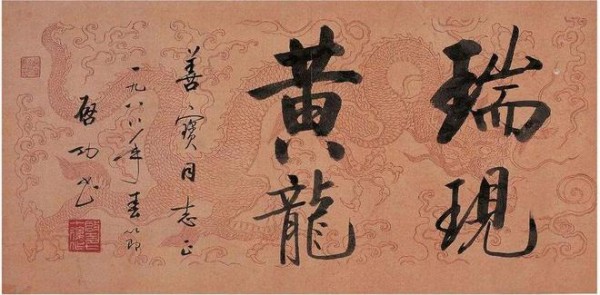 瑞現
黃龍
善寶同志正
一九八八年春節
啓功書